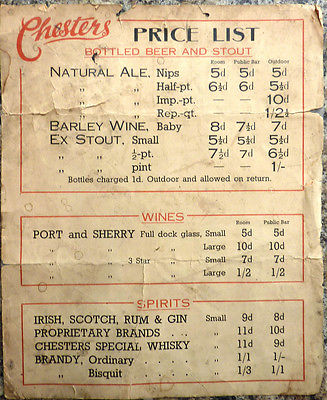 Chesters PRICE LIST
BOTTLED BEER AND STOUT
Room Public Bar Outdoor
NATURAL ALE, Nips 5d 5d 5d
„ „ Half-pt. 6½d 6d 5½d
„ „ Imp.-pt. — — 10d
„ „ Rep.-qt. — — 1/2½
BARLEY WINE, Baby 8d 7½d 7d
EX STOUT, Small 5½d 5½d 5½d
„ „ ½-pt. 7½d 7d 6½d
„ „ pint — — 1/-
Bottles charged 1d. Outdoor and allowed on return.
WINES
Room Public Bar
PORT and SHERRY Full dock glass, Small 5d 5d
„ „ „ Large 10d 10d
„ 3 Star „ Small 7d 7d
„ „ „ Large 1/2 1/2
SPIRITS
Room Public Bar
IRISH, SCOTCH, RUM & GIN Small 9d 8d
PROPRIETARY BRANDS . . „ 11d 10d
CHESTERS SPECIAL WHISKY „ 11d 9d
BRANDY, Ordinary . . „ 1/1 1/-
„ Bisquit . . „ 1/3 1/1